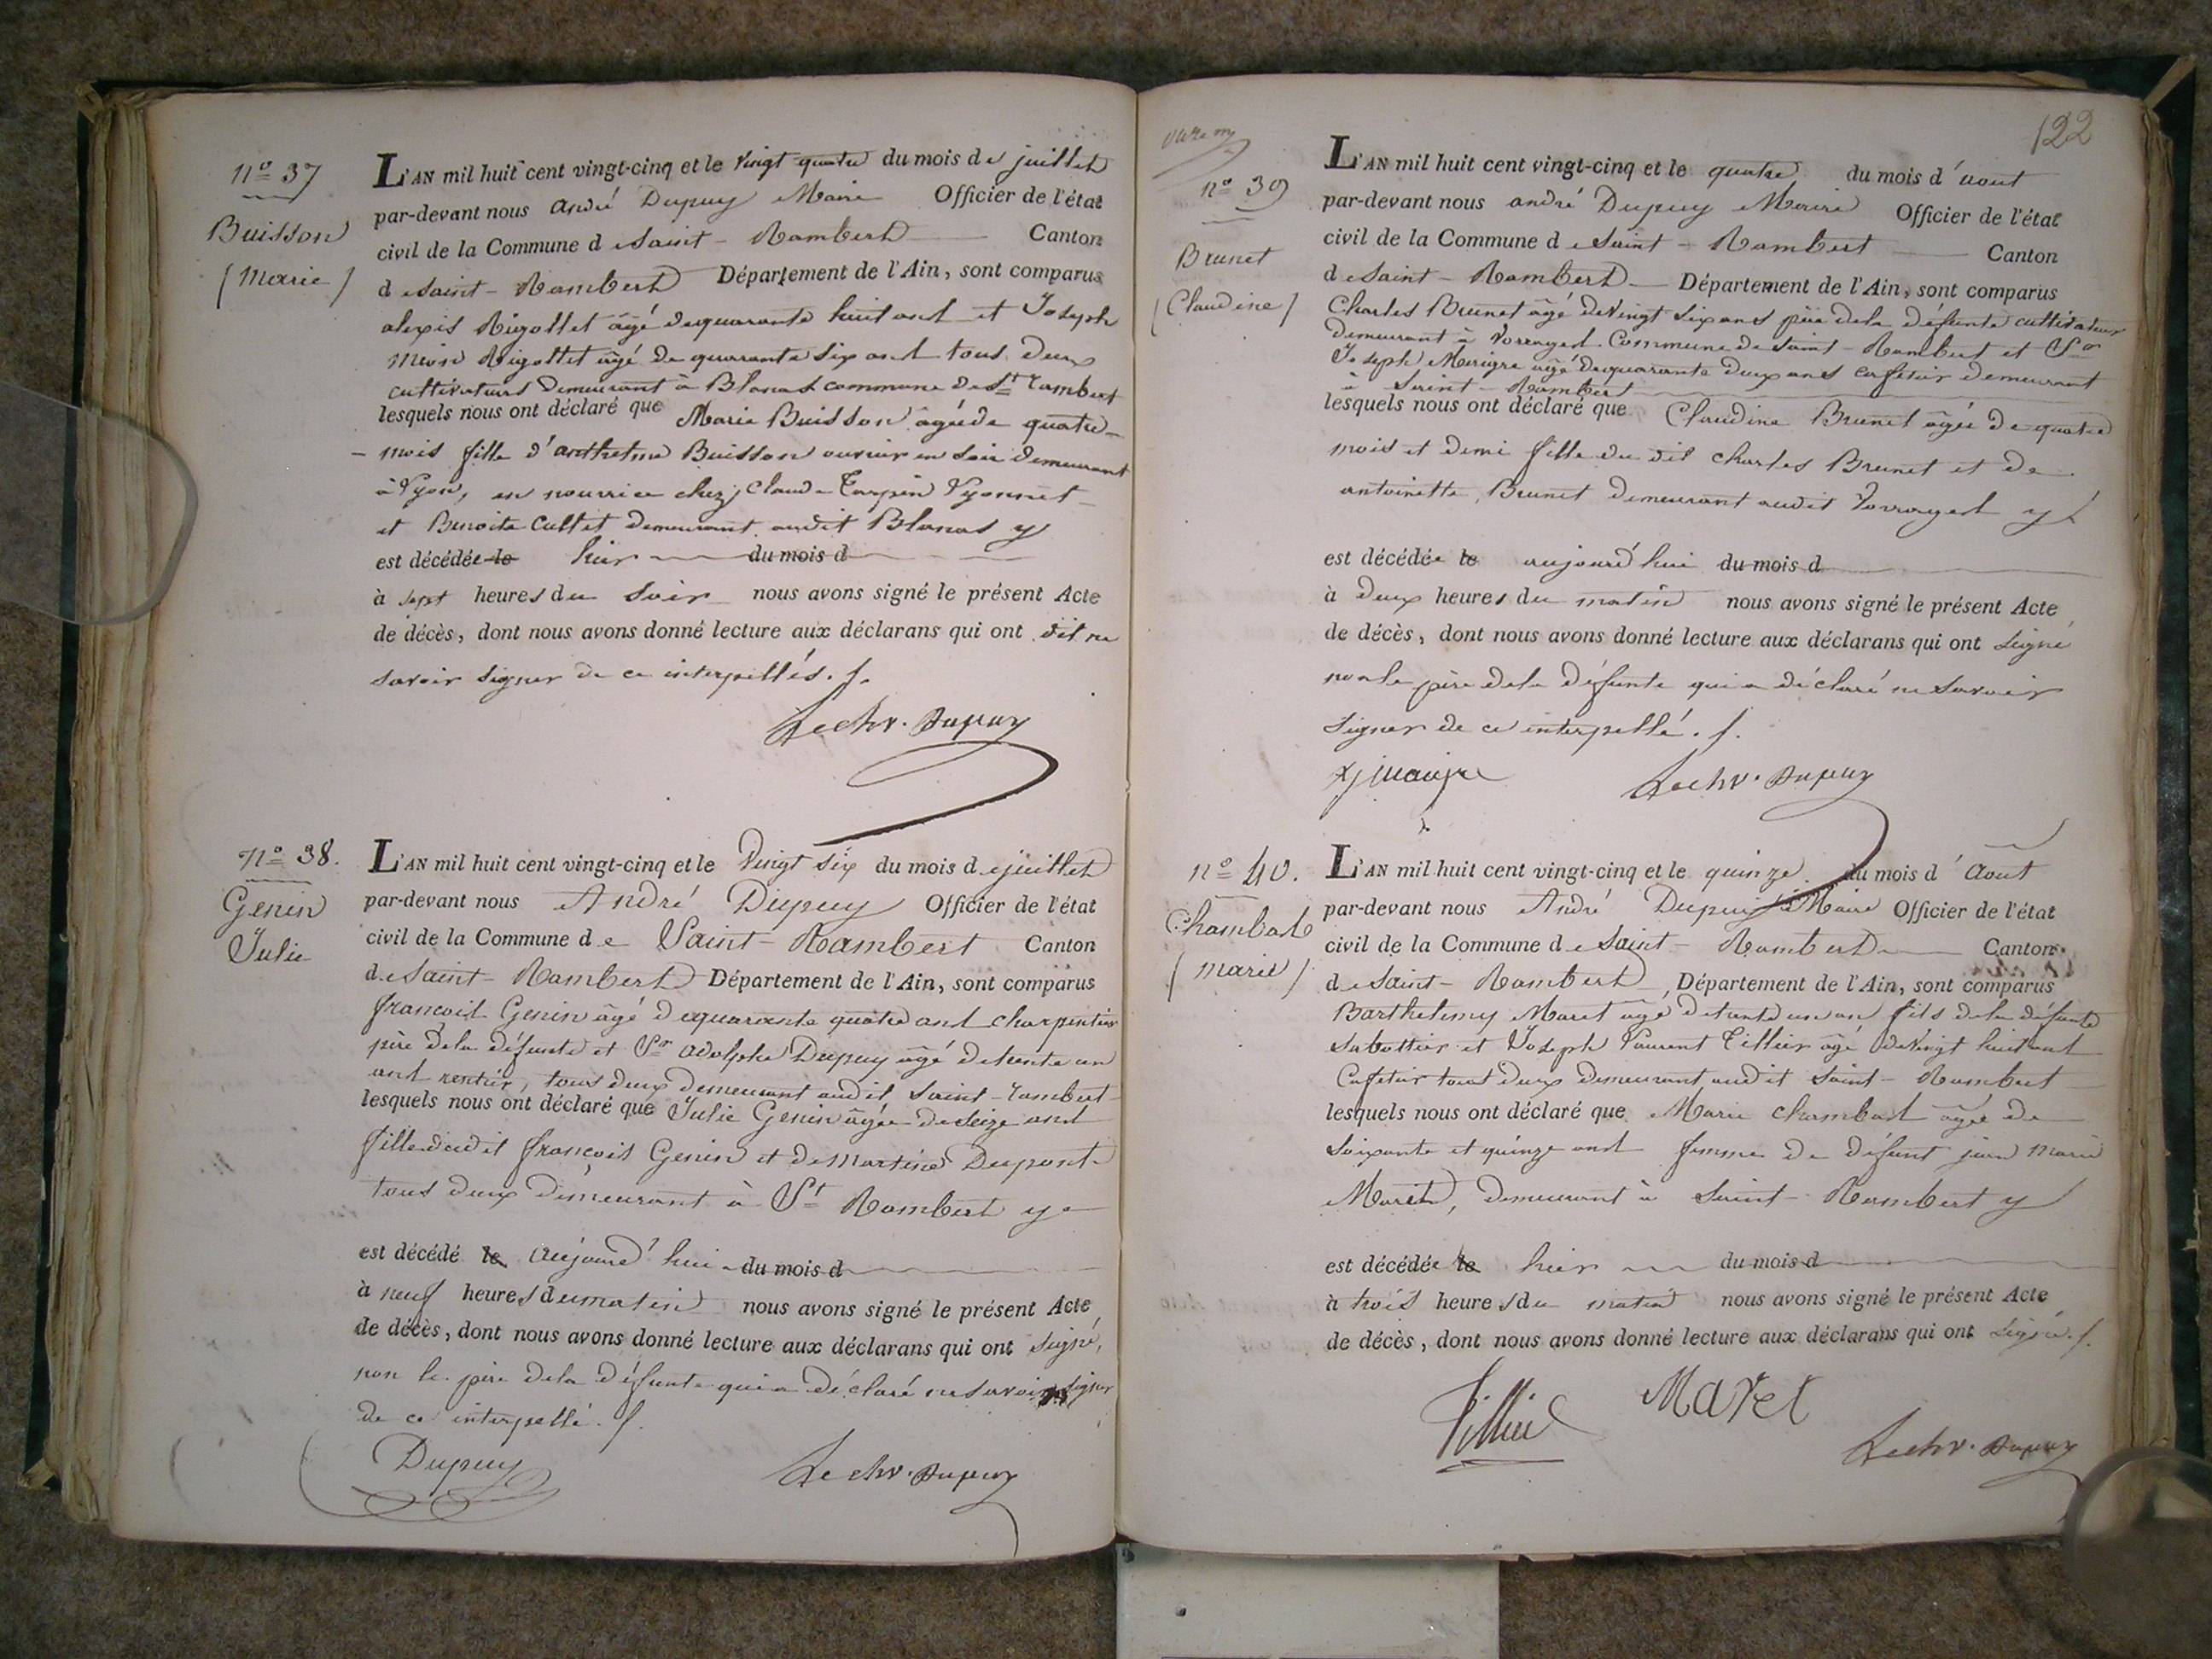 n° 37
Buisson
(Marie)
L'AN mil huit cent vingt-cinq et le vingt quatre du mois de juillet
par-devant nous André Dupuy Maire Officier de l'état
civil de la Commune de Saint-Rambert Canton
de Saint-Rambert Département de l'Ain, sont comparus
alexis Rigollet âgé de quarante huit ans et Joseph
Rigollet âgé de quarante six ans tous deux
cultivateurs demeurant à Blanas commune de St Rambert
lesquels nous ont déclaré que Marie Buisson âgée de quatre
mois fille d'anthelme Buisson ouvrier en soie demeurant
à Lyon, en nourrice chez Claude Lyonnet
et Benoite Cultet demeurant audit Blanas y
est décédée le hier du mois d
à sept heures du soir nous avons signé le présent Acte
de décès, dont nous avons donné lecture aux déclarans qui ont dit ne
savoir signer de ce interpellés.
Le chv. Dupuy
n° 38.
Genin
Julie
L'AN mil huit cent vingt-cinq et le Vingt six du mois de juillet
par-devant nous André Dupuy Officier de l'état
civil de la Commune de Saint-Rambert Canton
de Saint-Rambert Département de l'Ain, sont comparus
françois Genin âgé de quarante quatre ans charpentier
père de la défunte et Sr adolphe Dupuy âgé de trente un
ans rentier, tous deux demeurant audit Saint-Rambert
lesquels nous ont déclaré que Julie Genin âgée de seize ans
fille dudit françois Genin et de Martine Dupont
tous deux demeurant à St Rambert y
est décédé le aujourd'hui du mois d
à neuf heures du matin nous avons signé le présent Acte
de décès, dont nous avons donné lecture aux déclarans qui ont signé,
non le père de la défunte qui a déclaré ne savoir signer
de ce interpellé.
Dupuy Le chv. Dupuy
122
n° 39
Brunet
(Claudine)
L'AN mil huit cent vingt-cinq et le quatre du mois d'aout
par-devant nous andré Dupuy Maire Officier de l'état
civil de la Commune de Saint-Rambert Canton
de Saint-Rambert Département de l'Ain, sont comparus
Charles Brunet âgé de vingt six ans père de la défunte cultivateur
demeurant à Commune de Saint-Rambert et Sr
Joseph âgé de quarante deux ans cafetier demeurant
à Saint-Rambert
lesquels nous ont déclaré que Claudine Brunet âgée de quatre
mois et demi fille du dit charles Brunet et de
antoinette Brunet demeurant audit y
est décédée le aujourd'hui du mois d
à deux heures du matin nous avons signé le présent Acte
de décès, dont nous avons donné lecture aux déclarans qui ont signé
non le père de la défunte qui a déclaré ne savoir
signer de ce interpellé.
Le chv. Dupuy
n° 40.
Chambard
(marie)
L'AN mil huit cent vingt-cinq et le quinze du mois d'Août
par-devant nous André Dupuy Maire Officier de l'état
civil de la Commune de Saint-Rambert Canton
de Saint-Rambert Département de l'Ain, sont comparus
Barthelemy Maret âgé de trente un an fils de la défunte
sabottier et Joseph Laurent Tillier âgé de vingt huit ans
Cafetier tous deux demeurant audit Saint-Rambert
lesquels nous ont déclaré que Marie Chambard âgée de
soixante et quinze ans femme de défunt jean marie
Maret, demeurant à Saint-Rambert y
est décédée le hier du mois d
à trois heures du matin nous avons signé le présent Acte
de décès, dont nous avons donné lecture aux déclarans qui ont signé.
Tillier Maret
Le chv. Dupuy